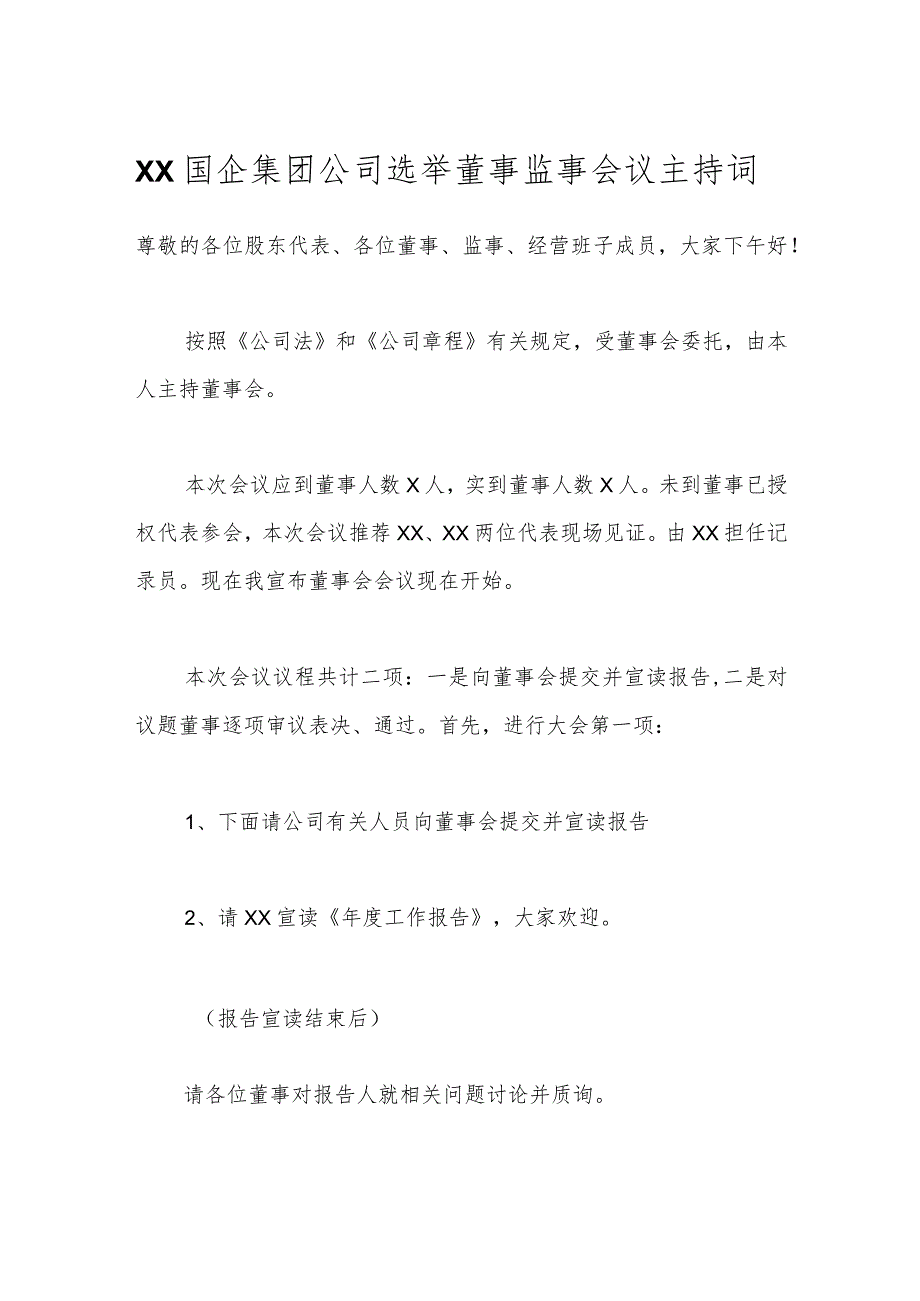 XX国企集团公司选举董事监事会议主持词
尊敬的各位股东代表、各位董事、监事、经营班子成员，大家下午好！
按照《公司法》和《公司章程》有关规定，受董事会委托，由本
人主持董事会。
本次会议应到董事人数X人，实到董事人数X人。未到董事已授
权代表参会，本次会议推荐XX、XX两位代表现场见证。由XX担任记
录员。现在我宣布董事会会议现在开始。
本次会议议程共计二项：一是向董事会提交并宣读报告,二是对
议题董事逐项审议表决、通过。首先，进行大会第一项：
1、下面请公司有关人员向董事会提交并宣读报告
2、请XX宣读《年度工作报告》，大家欢迎。
（报告宣读结束后）
请各位董事对报告人就相关问题讨论并质询。